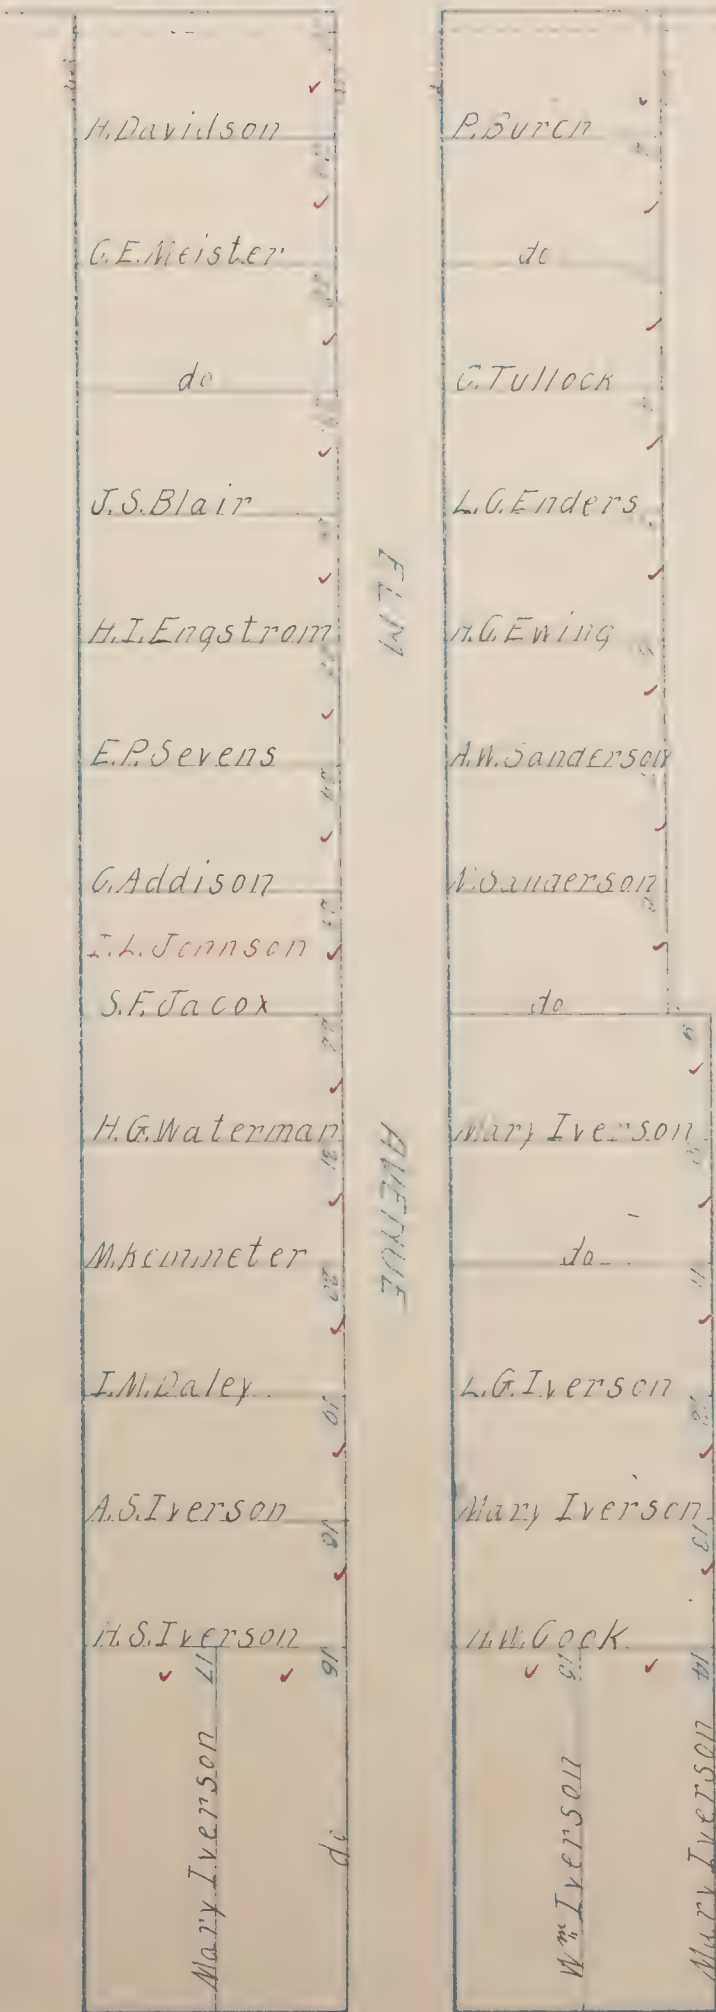 H. Davidson
C. E. Meister
do
J. S. Blair
H. I. Engstrom
E. P. Sevens
24
C. Addison
I. L. Johnson
S. F. Jacox
H. G. Waterman
21
M. Kemmeter
20
I. M. Daley
19
A. S. Iverson
18
H. S. Iverson
17
16
Mary Iverson
do
ELM
AVENUE
P. Burch
do
C. Tullock
L. G. Enders
H. G. Ewing
A. W. Sanderson
Sanderson
do
9
Mary Iverson
do
11
L. G. Iverson
12
Mary Iverson
13
Cook
15
14
Wm Iverson
Mary Iverson